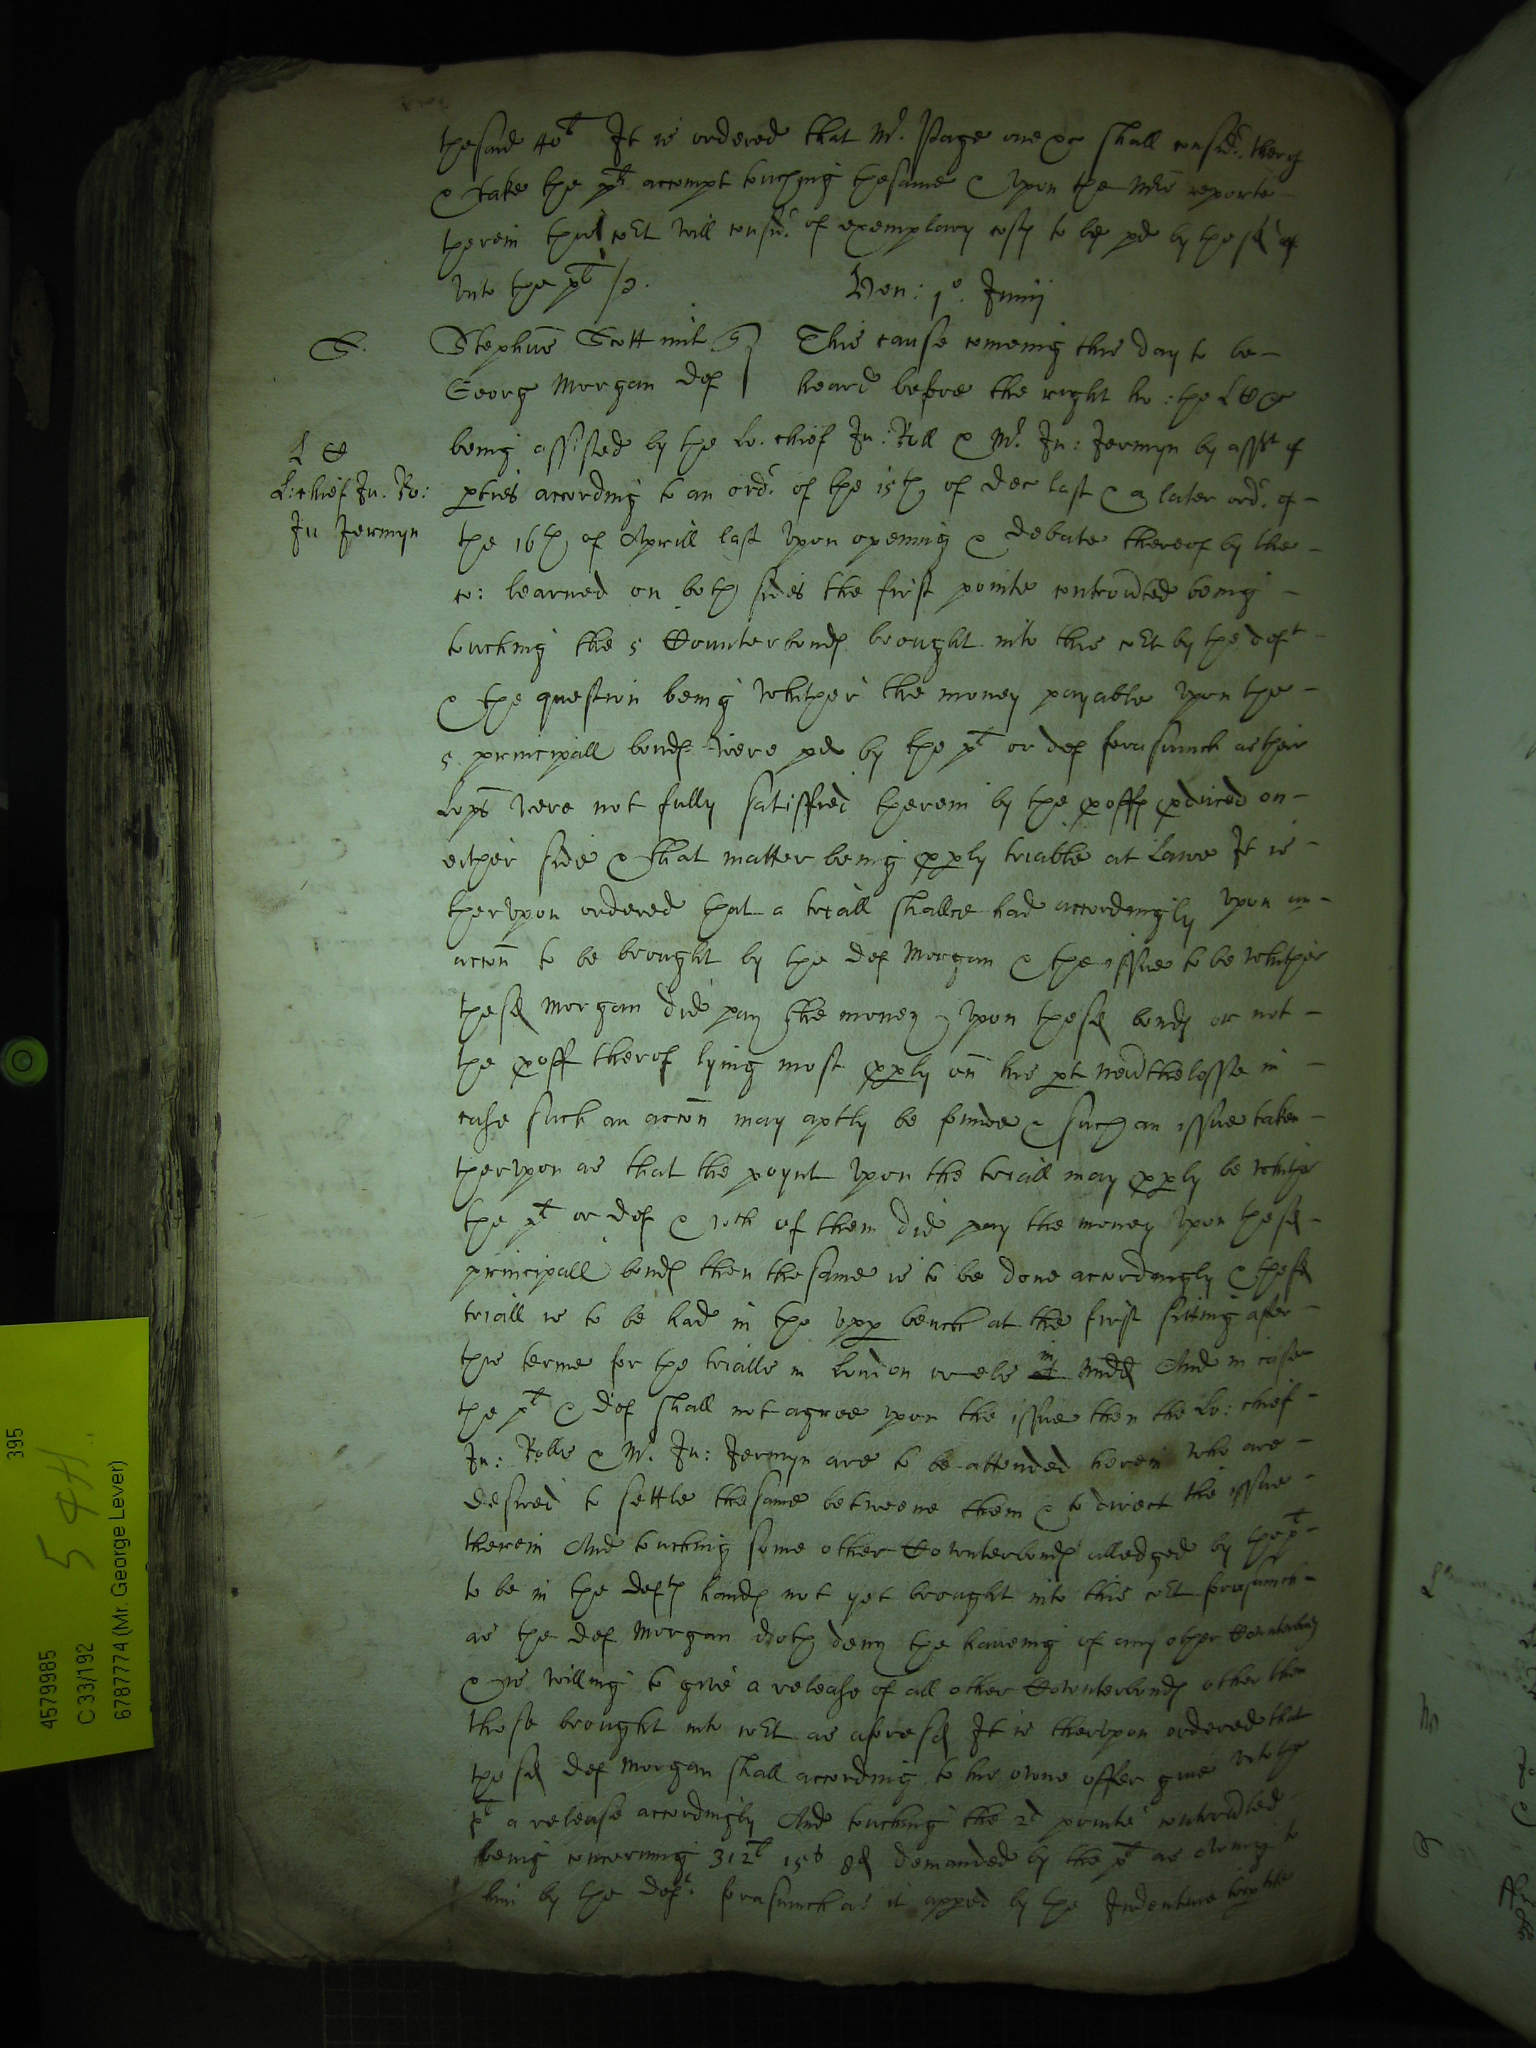 thesaid 40l It is ordered that Mr. Page one &c shall consider. therof
& take the plts accompt touching thesame & upon the Mrs reporte
therein this Cort will consider of exemplary costs to be pd by thesd
unto the plt /
Ven: 1o. Junij
S.
Stephus Scott mil
Georg Morgan def
This cause comeing this day to be
heard before the right ho: the L C
L C
L: chief Ju. Ro:
Ju Jermyn
being assisted by the Lo. chief Ju: Roll & Mr Ju: Jermyn by asst of
pties according to an ordr. of the 15th of Dec last & a later ordr. of
the 16th of Aprill last upon opening & debate thereof by the
co: learned on both sides the first pointe controverted being
touching the 5 Counterbonds brought into this Cort by the deft
& the question being whither the money payable upon the
5 principall bonds were pd by the plt or def forasmuch as their
Lops were not fully satisfied therein by the proffs produced on
either side & that matter being pply triable at Lawe It is
therupon ordered that a triall shalbe had accordingly upon an
accon to be brought by the def Morgan & the issue to be whither
thesd Morgan did pay the money upon thesd bonds or not
the proff therof lying most pply on his pt nevertheless in
case such an accon may aptly be found & such an issue taken
therupon as that the poynt upon the triall may pply be whither
the plt or def & wch of them did pay the money upon thesd
principall bonds then thesame is to be done accordingly & thesd
triall is to be had in the upp bench at the first sitting after
this terme for the trialls in London or els in Midd And in case
the plt & def shall not agree upon the issue then the Lo: chief
Ju: Rolls & Mr. Ju: Jermyn are to be attended herein who are
desired to settle thesame betweene them & to direct the issue
therein And touching some other Counterbonds alledged by the plt
to be in the defts hands not yet brought into this Cort forasmuch
as the def Morgan doth deny the haveing of any other Counterbonds
& is willing to give a release of all other Counterbonds other then
those brought into Cort as aforesd It is therupon ordered that
the sd def Morgan shall according to his owne offer give unto the
plt a release accordingly And touching the 2d pointe controverted
being concerning 312l 15s 8d demanded by the plt as owing to
him by the deft. forasmuch as it appred by the Indenture
4579985
C 33/192
6787774 (Mr. George Lever)
395